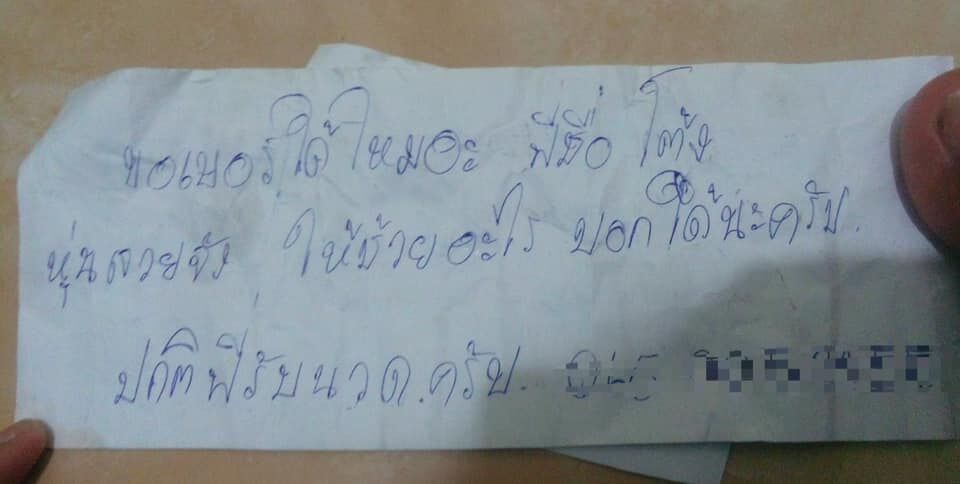 ขอเบอร์ได้ใหมอะ พี่ชื่อ โต้ง
หุ่นสวยจัง ให้ช้วยอะไร บอกได้นะครับ.
ปกติพี่รับนวด.ครับ.